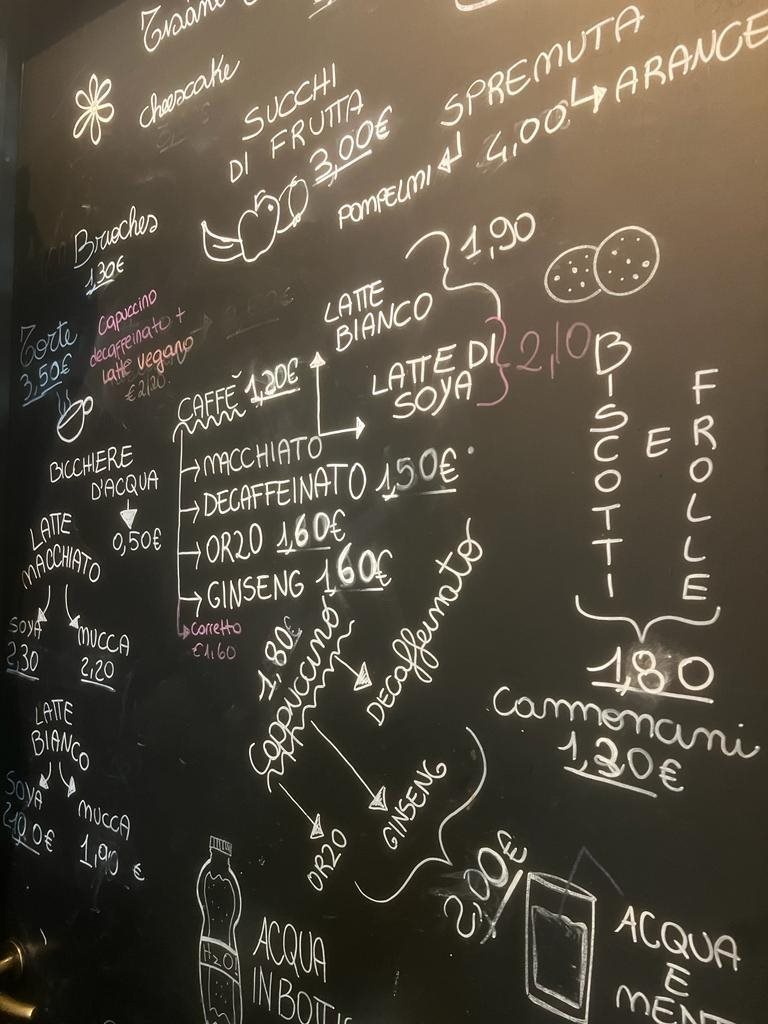 cheescake
SUCCHI
DI FRUTTA
3,00€
SPREMUTA
4,00
ARANCE
POMPELMI
Brioches
1,30€
Torte
3,50€
Capuccino
decaffeinato +
latte vegano
€2,20
LATTE
BIANCO
1,90
LATTE DI
SOYA
2,10
CAFFÈ 1,20€
MACCHIATO
DECAFFEINATO 1,50€
ORZO 1,60€
GINSENG 1,60€
corretto
€1,60
BISCOTTI
E
FROLLE
1,80
BICCHIERE
D'ACQUA
0,50€
LATTE
MACCHIATO
SOYA
2,30
MUCCA
2,20
LATTE
BIANCO
SOYA
MUCCA
1,90 €
1,80€
Cappuccino
DECAffeinato
GINSENG
ORZO
2,00€
Cannoncini
1,30€
H2O
ACQUA
IN BOTTI
ACQUA
E
MENT